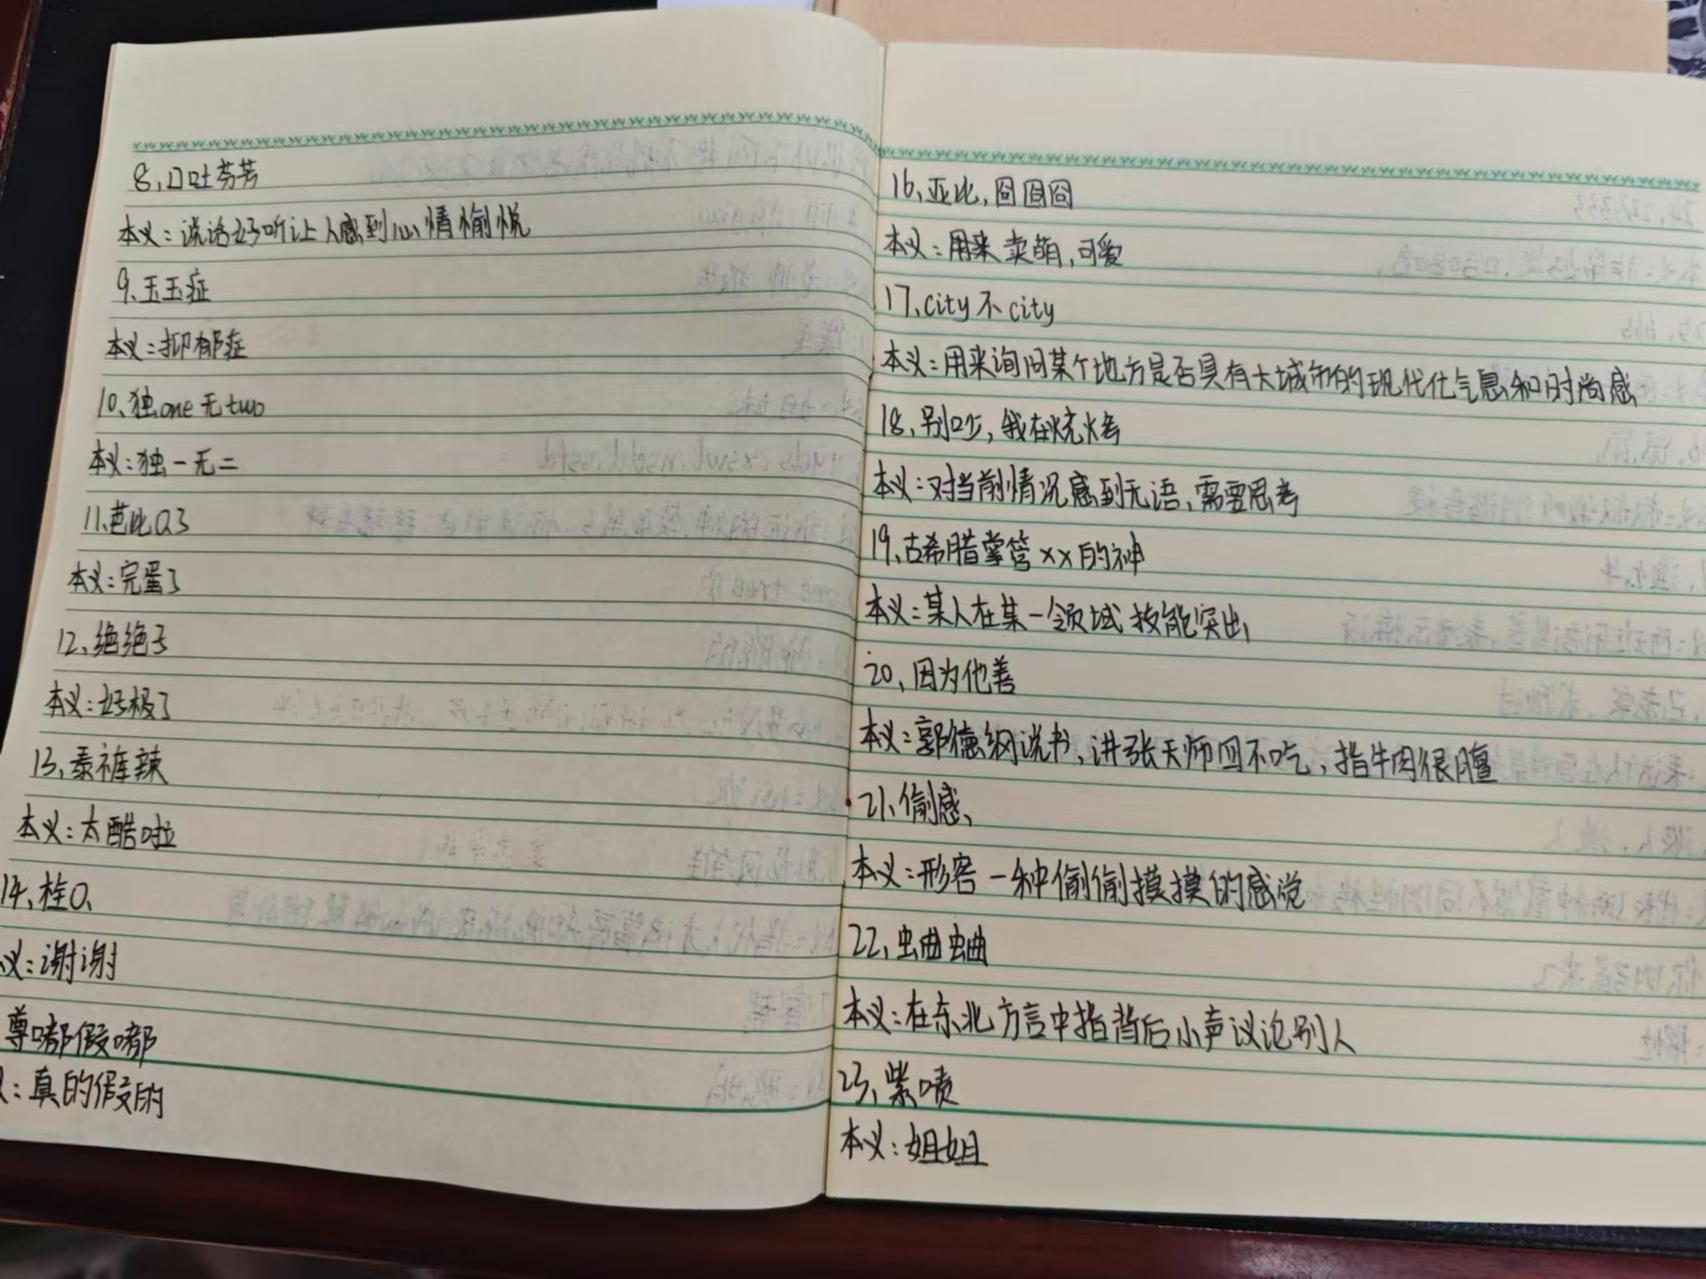 8、口吐芬芳
本义：说话好听让人感到心情愉悦
9、玉玉症
本义：抑郁症
10、独one无two
本义：独一无二
11、芭比Q了
本义：完蛋了
12、绝绝子
本义：好极了
13、泰裤辣
本义：太酷啦
14、栓Q、
义：谢谢
尊嘟假嘟
：真的假的
16、亚比，囧囧囧
本义：用来卖萌，可爱
17、city不city
本义：用来询问某个地方是否具有大城市的现代化气息和时尚感
18、别吵，我在烧烤
本义：对当前情况感到无语、需要思考
19、古希腊掌管xx的神
本义：某人在某一领域技能突出
20、因为他善
本义：郭德纲说书，讲张天师四不吃，指牛肉很膻
21、偷感、
本义：形容一种偷偷摸摸的感觉
22、蛐蛐
本义：在东北方言中指背后小声议论别人
23、紫啧
本义：姐姐